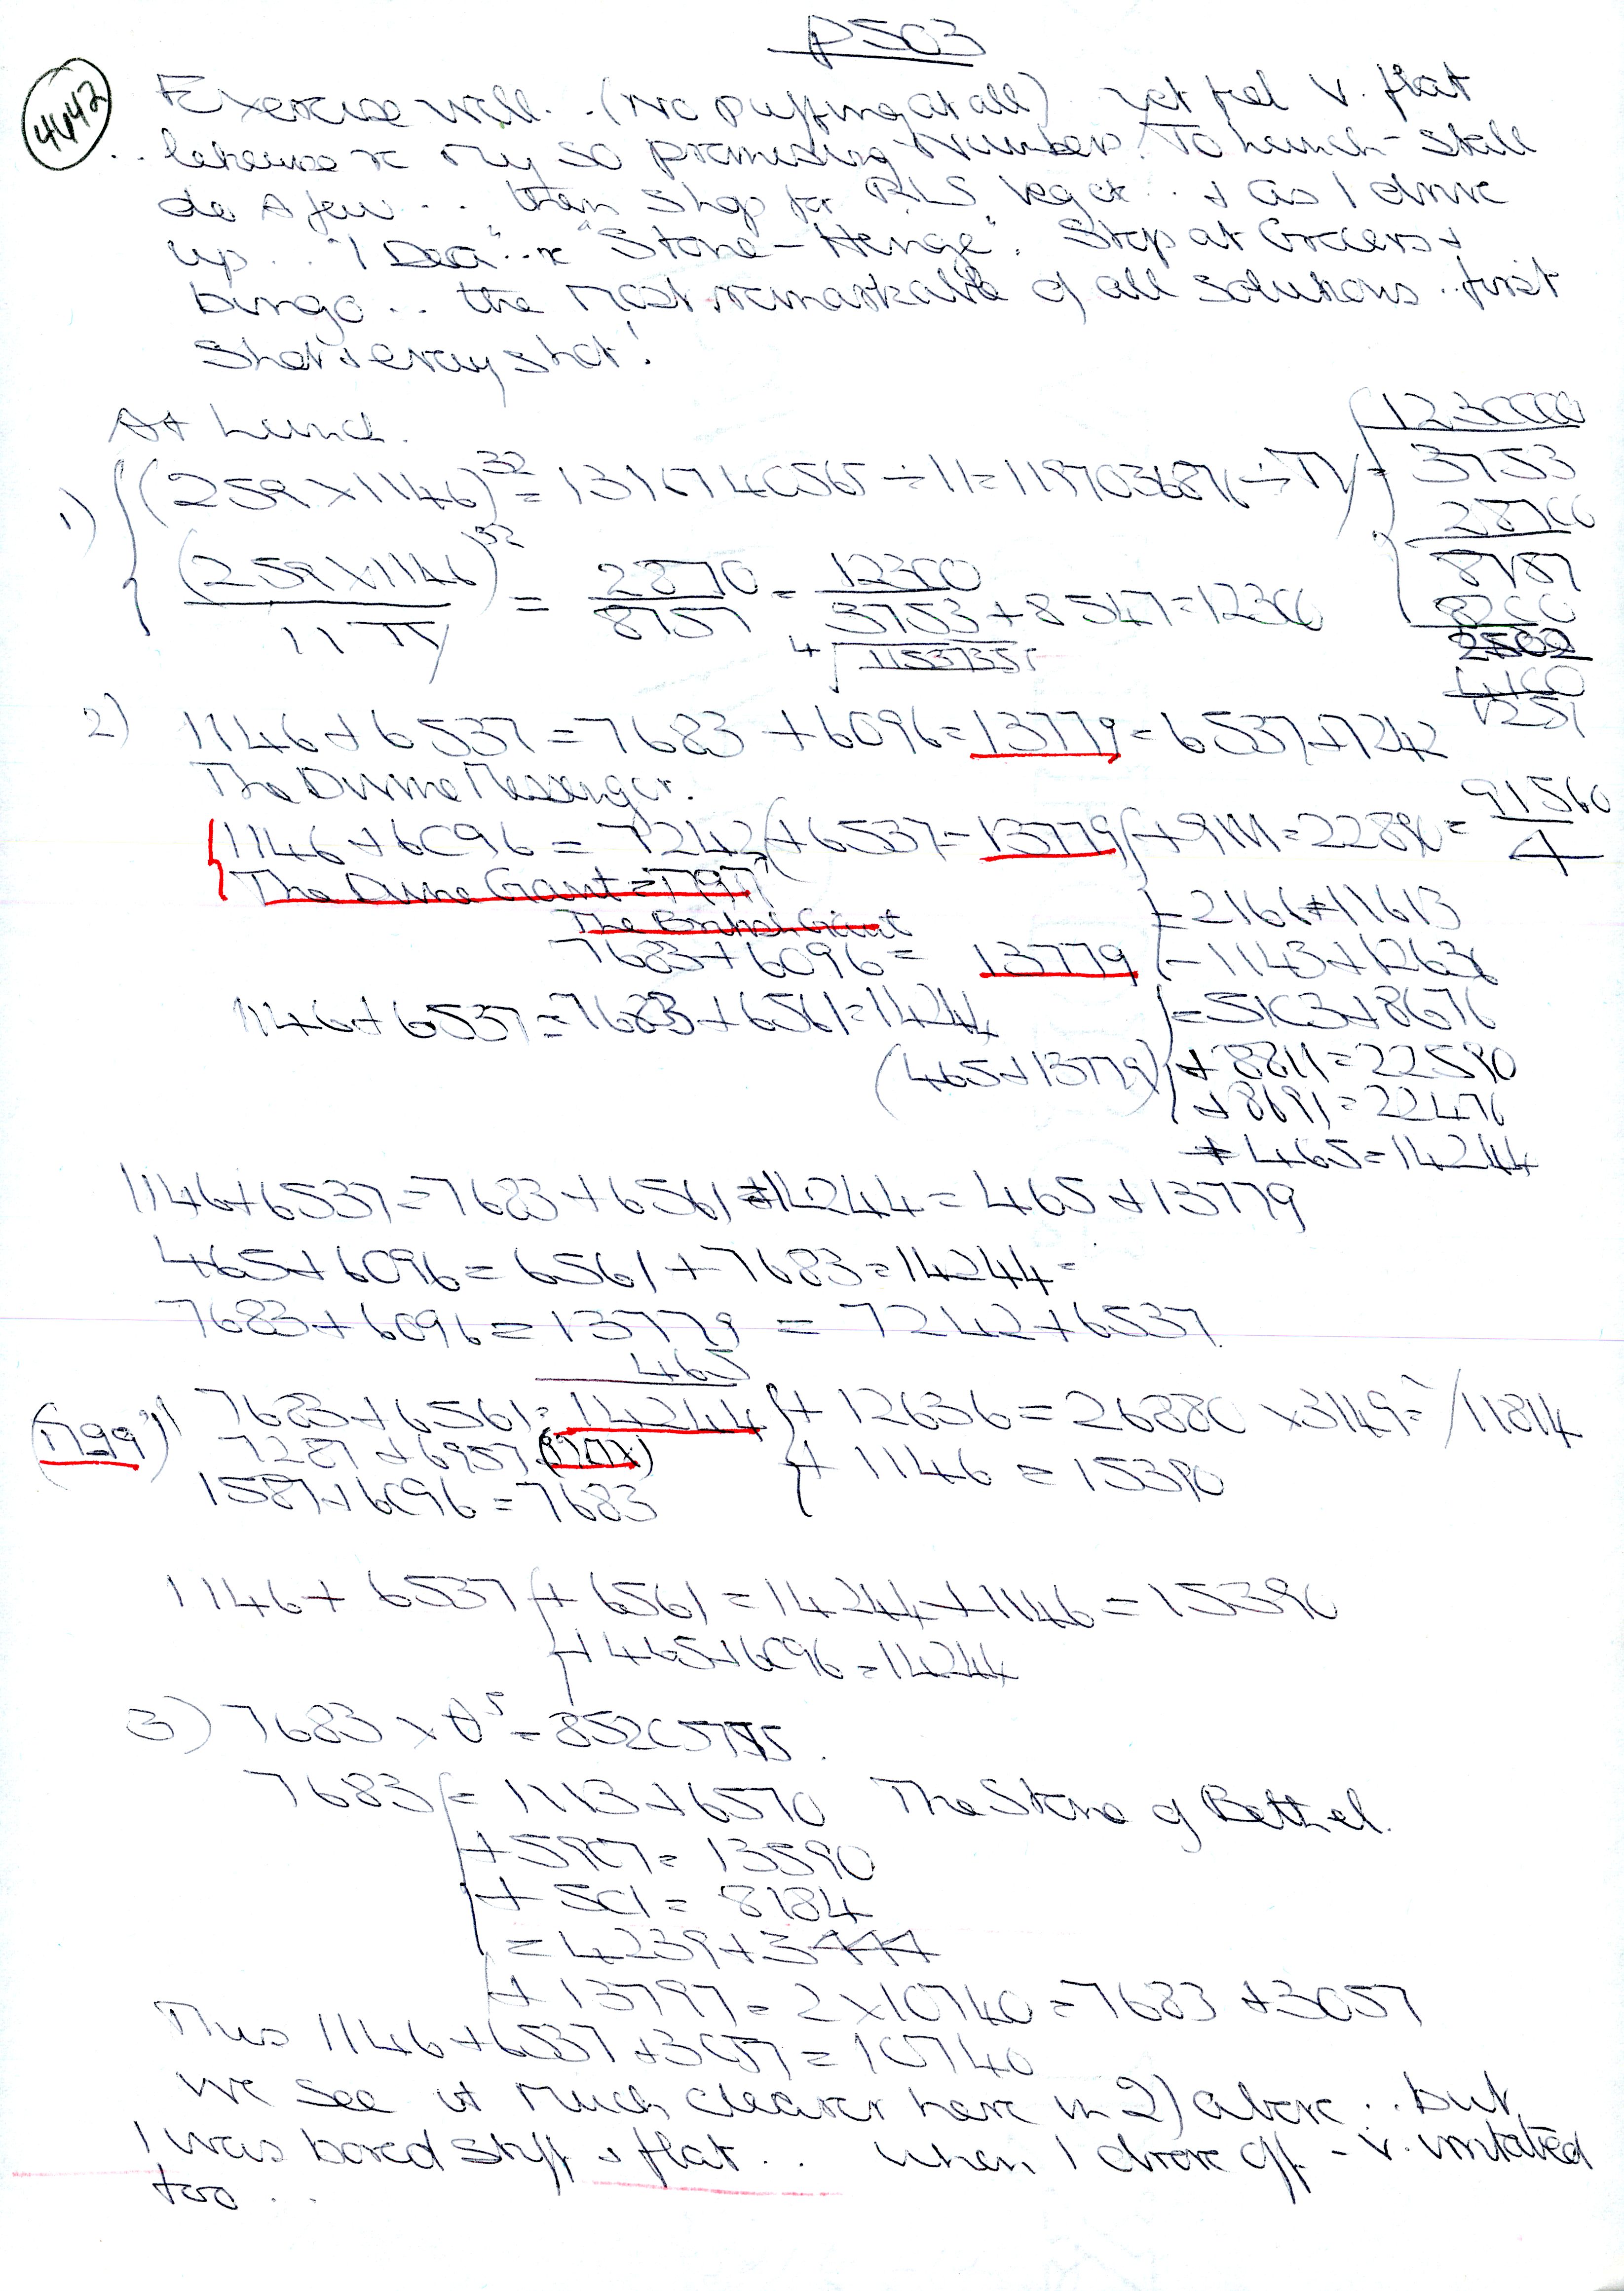 P503
4442
Exercise well.. (No puffing at all) yet feel v. flat
.. likewise my so promising Numbers. To Lunch - still
do a few .. then shop for RLS veg .. + as I drive
up .. "I Dea".. "Stone - Henge". Stop at Grocers +
bingo .. the most remarkable of all solutions .. first
Shot + every shot!
At Lunch.
1) (259 x 1146)^32 = 1316740565 ÷ 11 = 119703687 ÷ π = 1230000 / 3753
28700 / 8757
(259 x 1146)^32 / 11 π = 2870 / 8757 = 12300 / 3753 + 8547 = 12300
8200 / 2502
4 √ 11537351
4100 / 1251
2) 1146 + 6537 = 7683 + 6096 = 13779 = 6537 + 7242
The Divine Messenger.
1146 + 6096 = 7242 + 6537 = 13779 + 9111 = 22890 = 91560 / 4
The Divine Giant = 1797
The British Giant
= 2166 + 11613
7683 + 6096 = 13779 = 1143 + 12636
1146 + 6537 = 7683 + 6561 = 14244
= 5103 + 8676
(465 + 13779) + 8811 = 22590
+ 8697 = 22476
+ 465 = 14244
1146 + 6537 = 7683 + 6561 = 14244 = 465 + 13779
465 + 6096 = 6561 + 7683 = 14244 =
7683 + 6096 = 13779 = 7242 + 6537
465
(1799) 7683 + 6561 = 14244 + 12636 = 26880 x 3149 = / 11814
7287 + 6957
+ 1146 = 15390
1587 + 6096 = 7683
1146 + 6537 + 6561 = 14244 + 1146 = 15390
+ 465 + 6096 = 14244
3) 7683 x θ^5 = 85205755.
7683 = 1113 + 6570 The Stone of Bethel.
+ 5907 = 13590
+ 501 = 8184
= 4239 + 3444
+ 13797 = 2 x 10740 = 7683 + 3057
Thus 1146 + 6537 + 3057 = 10740
We see it much clearer here in 2) above .. but
I was bored stiff + flat .. when I drove off - v. irritated
too ..